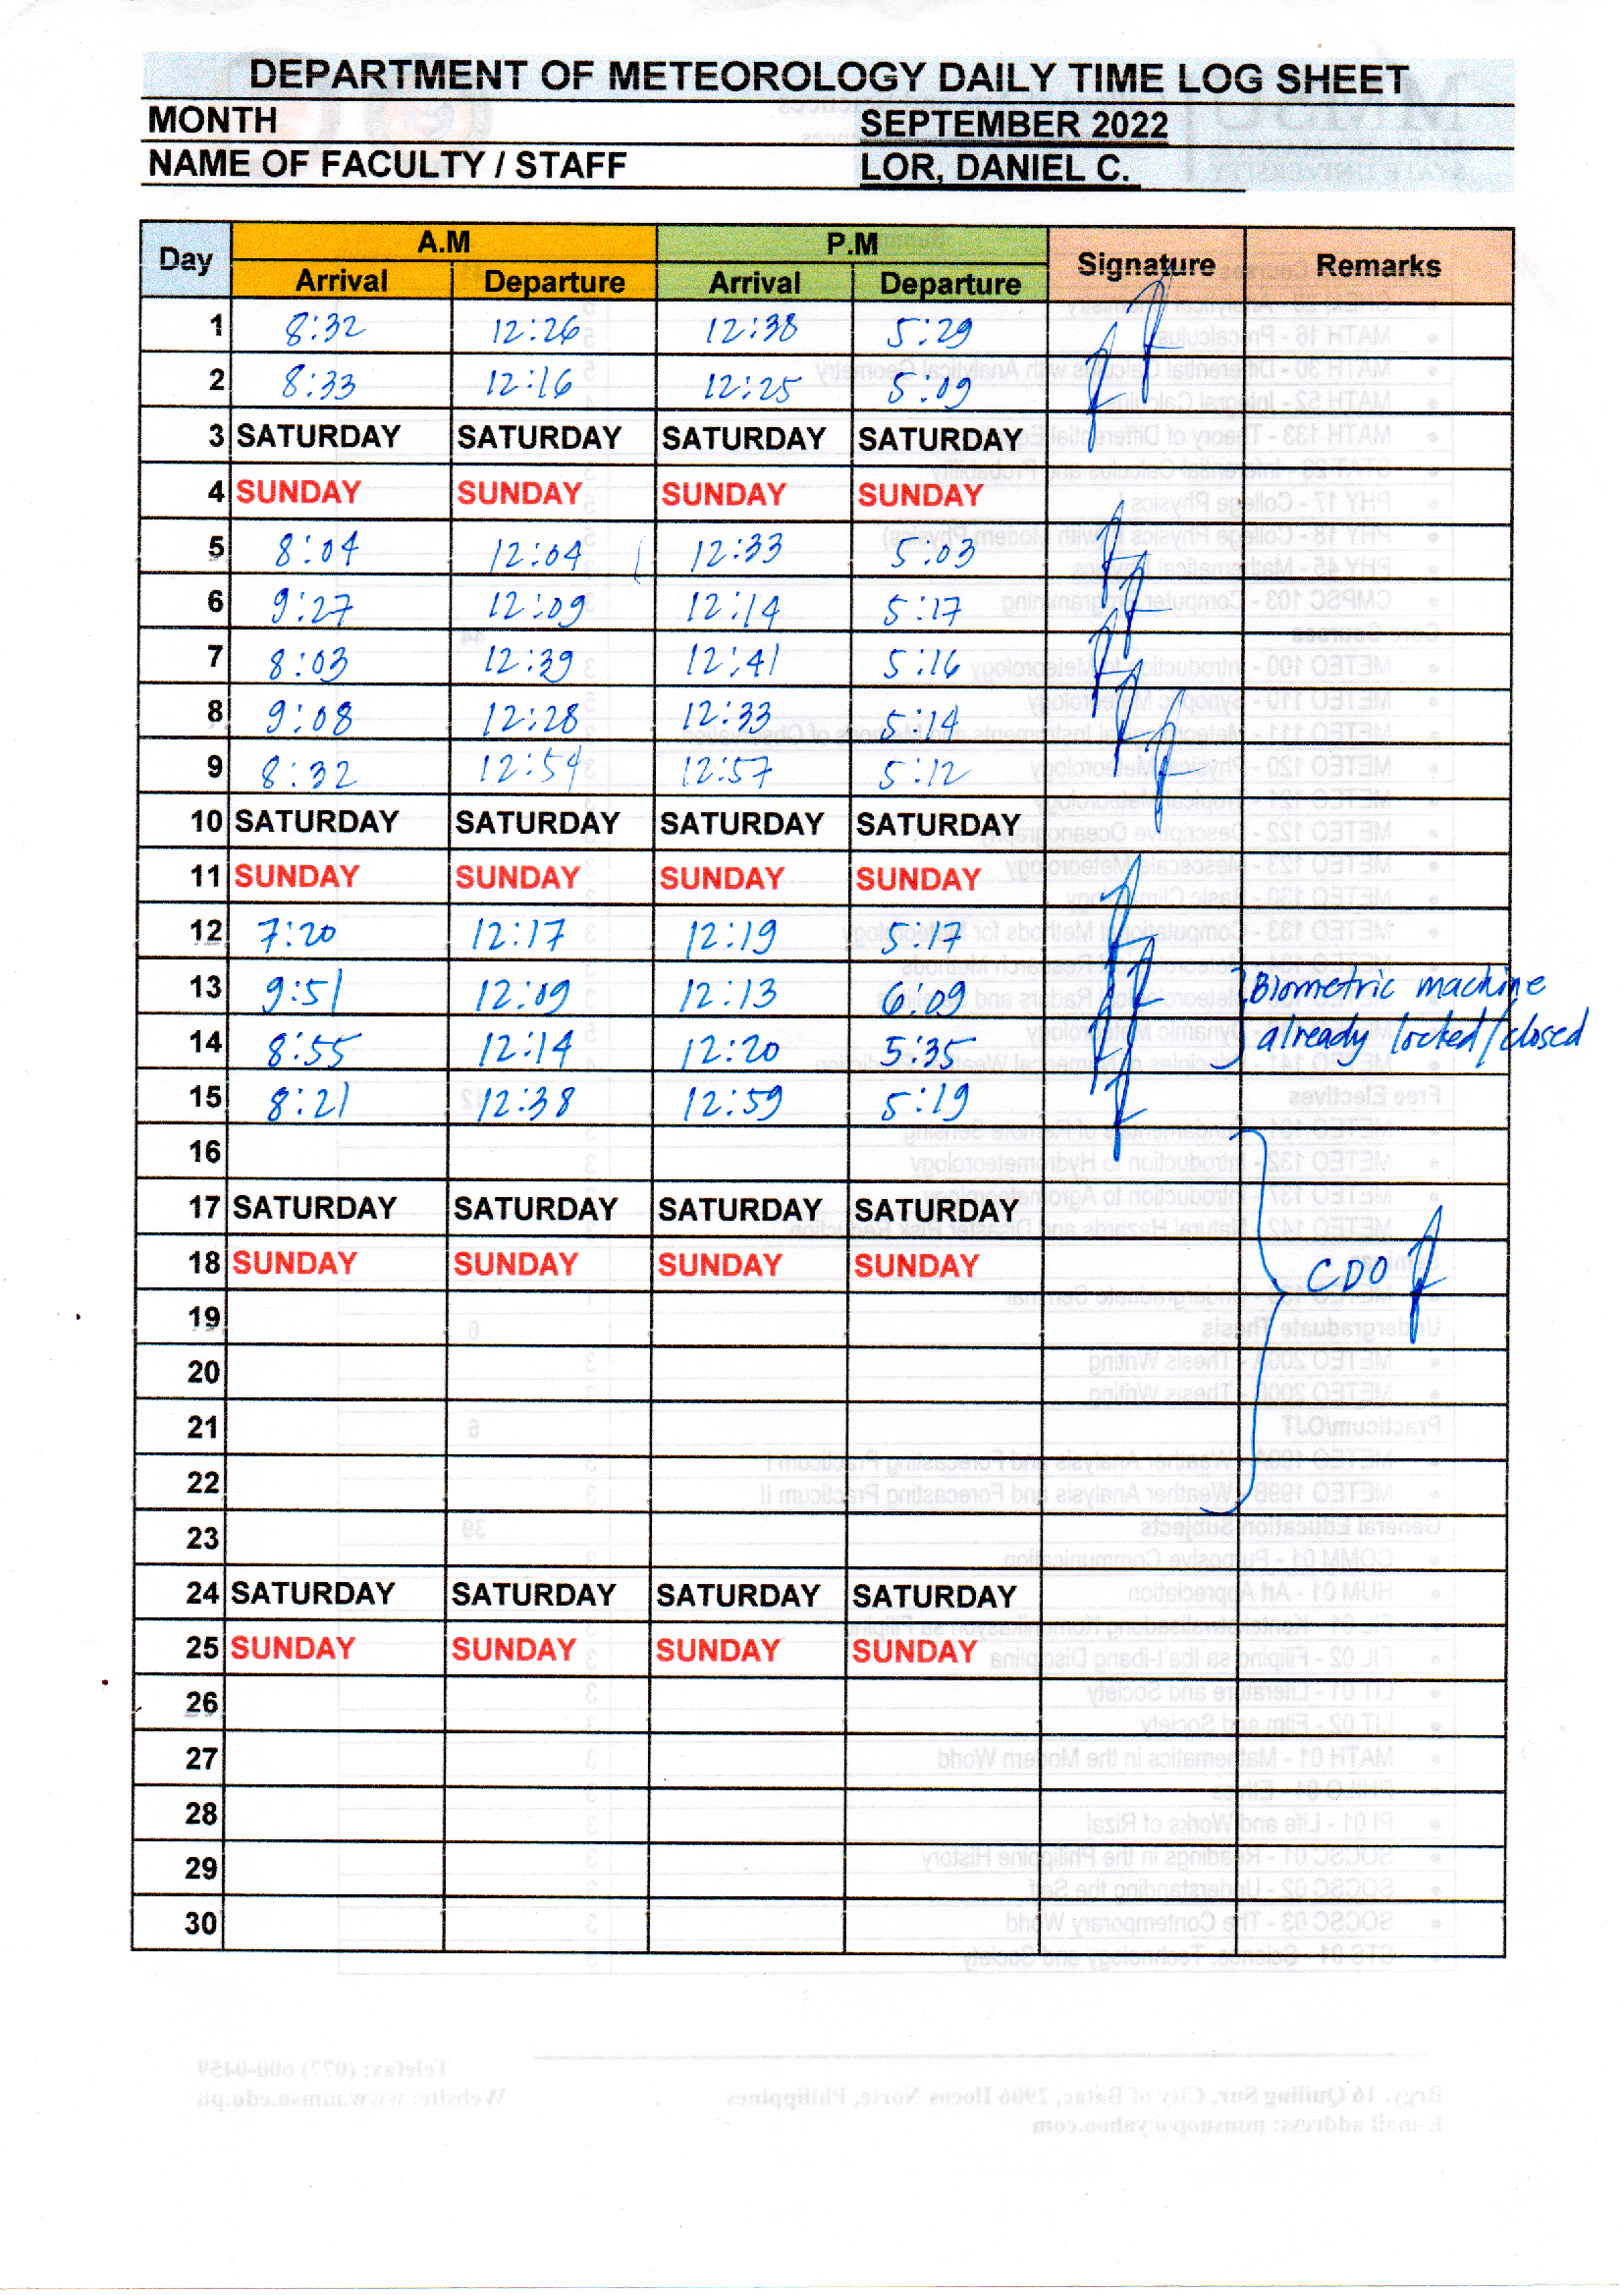 DEPARTMENT OF METEOROLOGY DAILY TIME LOG SHEET
MONTH SEPTEMBER 2022
NAME OF FACULTY / STAFF LOR, DANIEL C.
Day A.M P.M Signature Remarks
Arrival Departure Arrival Departure
1 8:32 12:26 12:38 5:29
2 8:33 12:16 12:25 5:09
3 SATURDAY SATURDAY SATURDAY SATURDAY
4 SUNDAY SUNDAY SUNDAY SUNDAY
5 8:04 12:04 12:33 5:03
6 9:27 12:09 12:14 5:17
7 8:03 12:39 12:41 5:16
8 9:08 12:28 12:33 5:14
9 8:32 12:54 12:57 5:12
10 SATURDAY SATURDAY SATURDAY SATURDAY
11 SUNDAY SUNDAY SUNDAY SUNDAY
12 7:20 12:17 12:19 5:17
13 9:51 12:09 12:13 6:09 Biometric machine
14 8:55 12:14 12:20 5:35 already locked/closed
15 8:21 12:38 12:59 5:19
16
17 SATURDAY SATURDAY SATURDAY SATURDAY
18 SUNDAY SUNDAY SUNDAY SUNDAY CDO
19
20
21
22
23
24 SATURDAY SATURDAY SATURDAY SATURDAY
25 SUNDAY SUNDAY SUNDAY SUNDAY
26
27
28
29
30